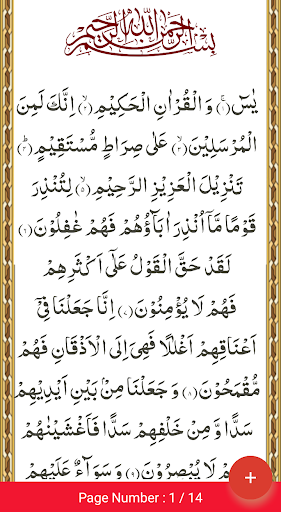 بِسْمِ اللّٰهِ الرَّحْمٰنِ الرَّحِيْمِ
يٰسٓ ﴿١﴾ وَ الْقُرْاٰنِ الْحَكِيْمِ ﴿٢﴾ اِنَّكَ لَمِنَ
الْمُرْسَلِيْنَ ﴿٣﴾ عَلٰى صِرَاطٍ مُّسْتَقِيْمٍ ﴿٤﴾
تَنْزِيْلَ الْعَزِيْزِ الرَّحِيْمِ ﴿٥﴾ لِتُنْذِرَ
قَوْمًا مَّاۤ اُنْذِرَ اٰبَآؤُهُمْ فَهُمْ غٰفِلُوْنَ ﴿٦﴾
لَقَدْ حَقَّ الْقَوْلُ عَلٰۤى اَكْثَرِهِمْ
فَهُمْ لَا يُؤْمِنُوْنَ ﴿٧﴾ اِنَّا جَعَلْنَا فِىْۤ
اَعْنَاقِهِمْ اَغْلٰلًا فَهِىَ اِلَى الْاَذْقَانِ فَهُمْ
مُّقْمَحُوْنَ ﴿٨﴾ وَ جَعَلْنَا مِنْۢ بَيْنِ اَيْدِيْهِمْ
سَدًّا وَّ مِنْ خَلْفِهِمْ سَدًّا فَاَغْشَيْنٰهُمْ
لَا يُبْصِرُوْنَ ﴿٩﴾ وَ سَوَآءٌ عَلَيْهِمْ
Page Number : 1 / 14
+